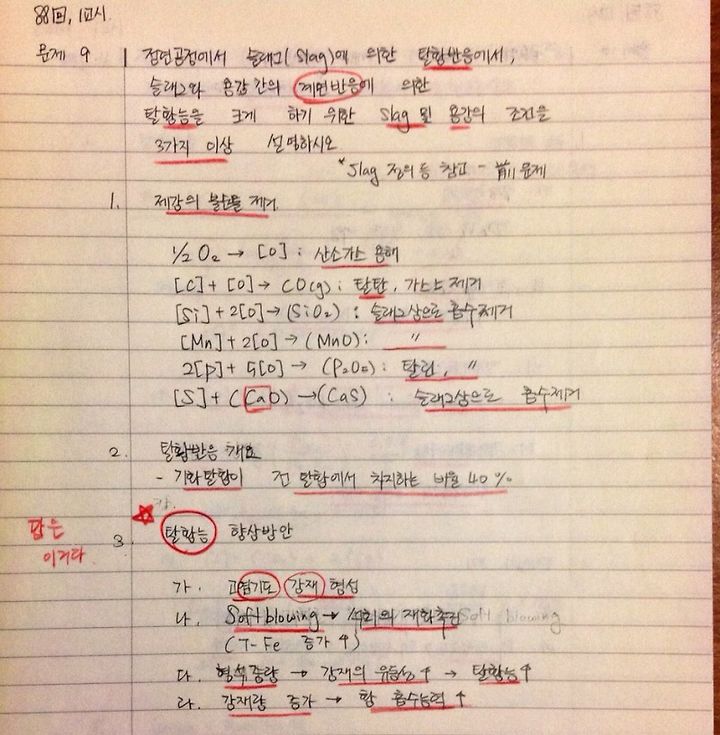 88回, 1교시.
문제 9 점연공정에서 슬래그(Slag)에 의한 탈황반응에서,
슬래그와 용강간의 계면반응에 의한
탈황능을 크게 하기 위한 Slag 및 용강의 조건을
3가지 이상 설명하시오
* Slag 정의 등 참고 - 前 문제
1. 제강의 불순물 제거
½O₂ → [O] : 산소가스 용해
[C] + [O] → CO(g) : 탈탄, 가스로 제거
[Si] + 2[O] → (SiO₂) : 슬래그상으로 흡수제거
[Mn] + 2[O] → (MnO) : 〃
2[P] + 5[O] → (P₂O₅) : 탈린, 〃
[S] + (CaO) → (CaS) : 슬래그상으로 흡수제거
2. 탈황반응 개요
- 기화탈황이 전 탈황에서 차지하는 비율 40%
답은 이거다
3. 탈황능 향상방안
가. 고염기도 강재 형성
나. Soft blowing → 석회의 재화촉진 Soft blowing
(T-Fe 증가 ↑)
다. 형석증량 → 강재의 유동성↑ → 탈황능↑
라. 강재량 증가 → 황 흡수능력 ↑